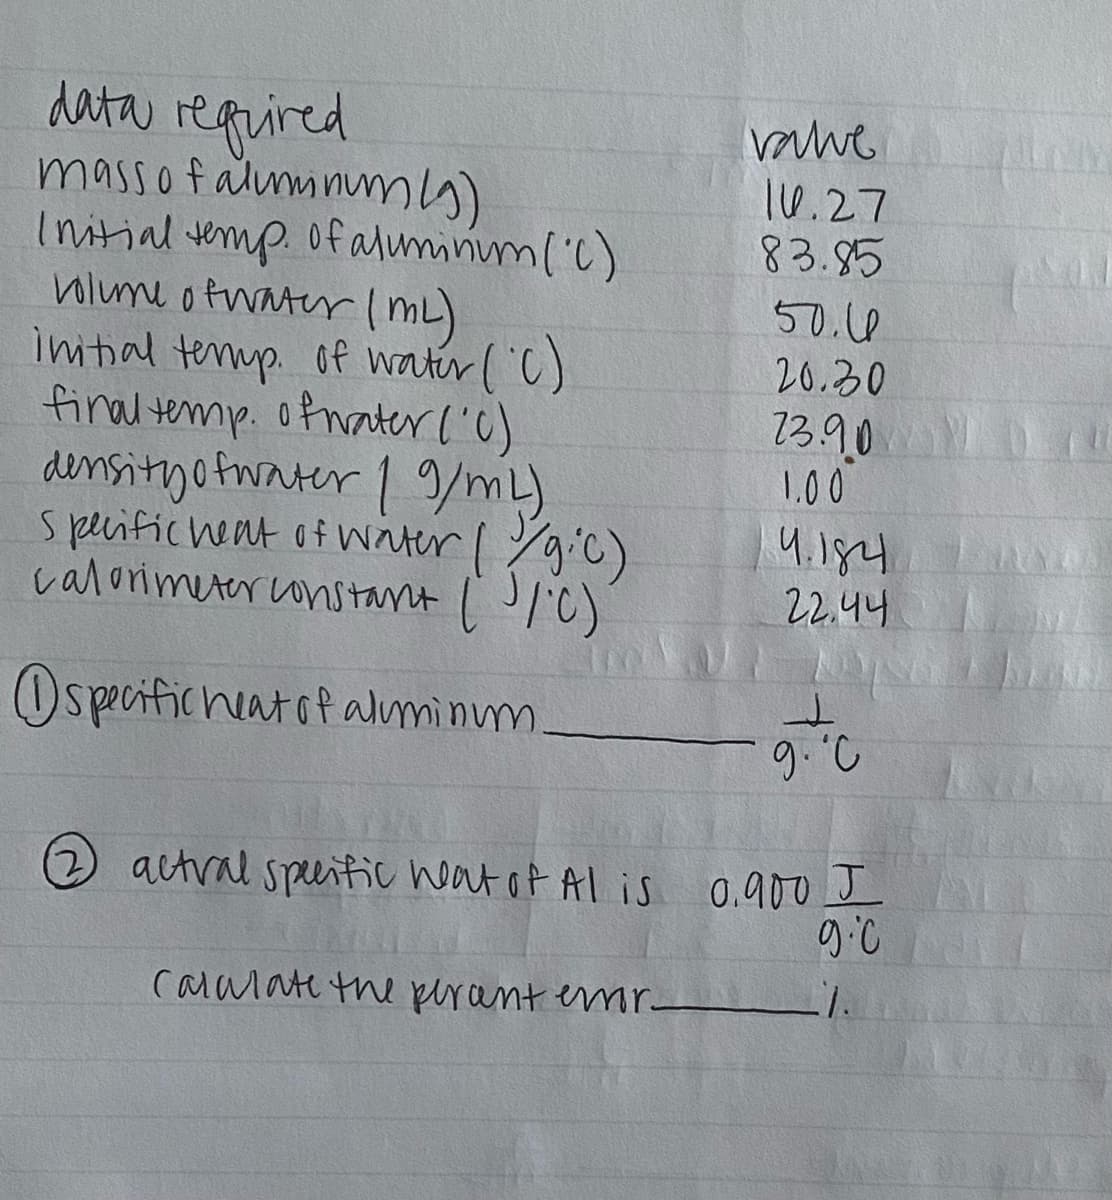 data required value
mass of aluminum (g) 16.27
Initial temp. of aluminum (°C) 83.85
volume of water (mL) 50.6
initial temp. of water (°C) 20.30
final temp. of water (°C) 23.90
density of water (g/mL) 1.00
specific heat of water (J/g·°C) 4.184
calorimeter constant (J/°C) 22.44
① specific heat of aluminum ______ J/g·°C
② actual specific heat of Al is 0.900 J/g·°C
calculate the percent error ______ %.